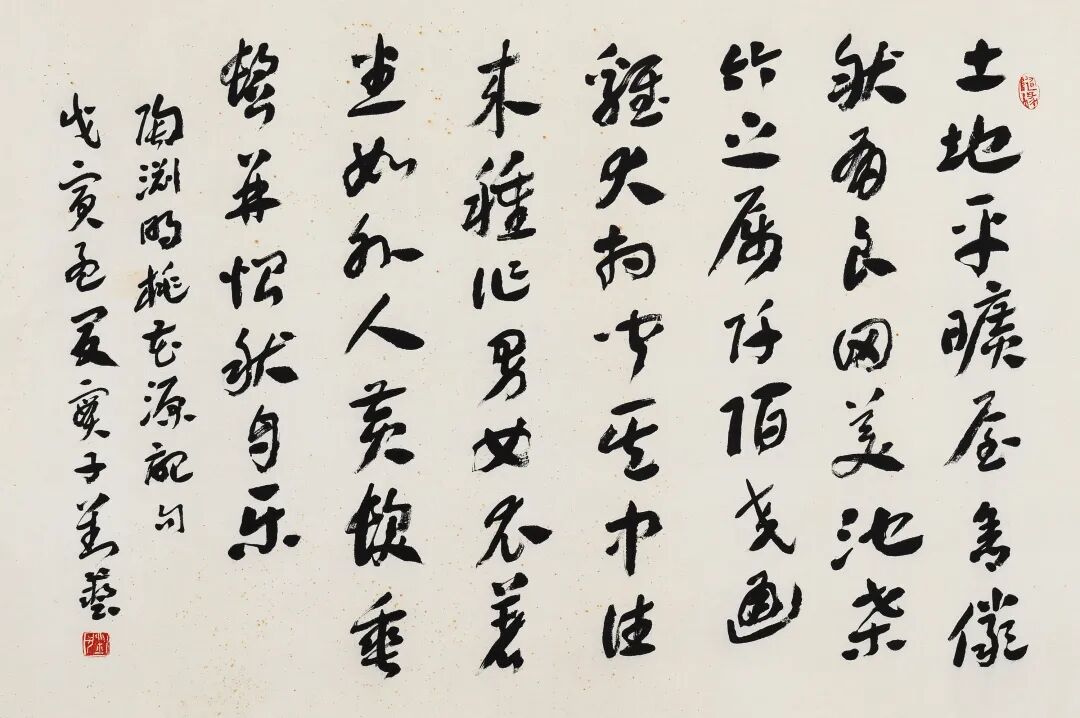 土地平曠屋舍儼
然有良田美池桑
竹之属阡陌交通
雞犬相聞其中往
来種作男女衣著
悉如外人黄髮垂
髫并怡然自乐
陶渊明桃花源記句
戊寅孟夏子劉藝